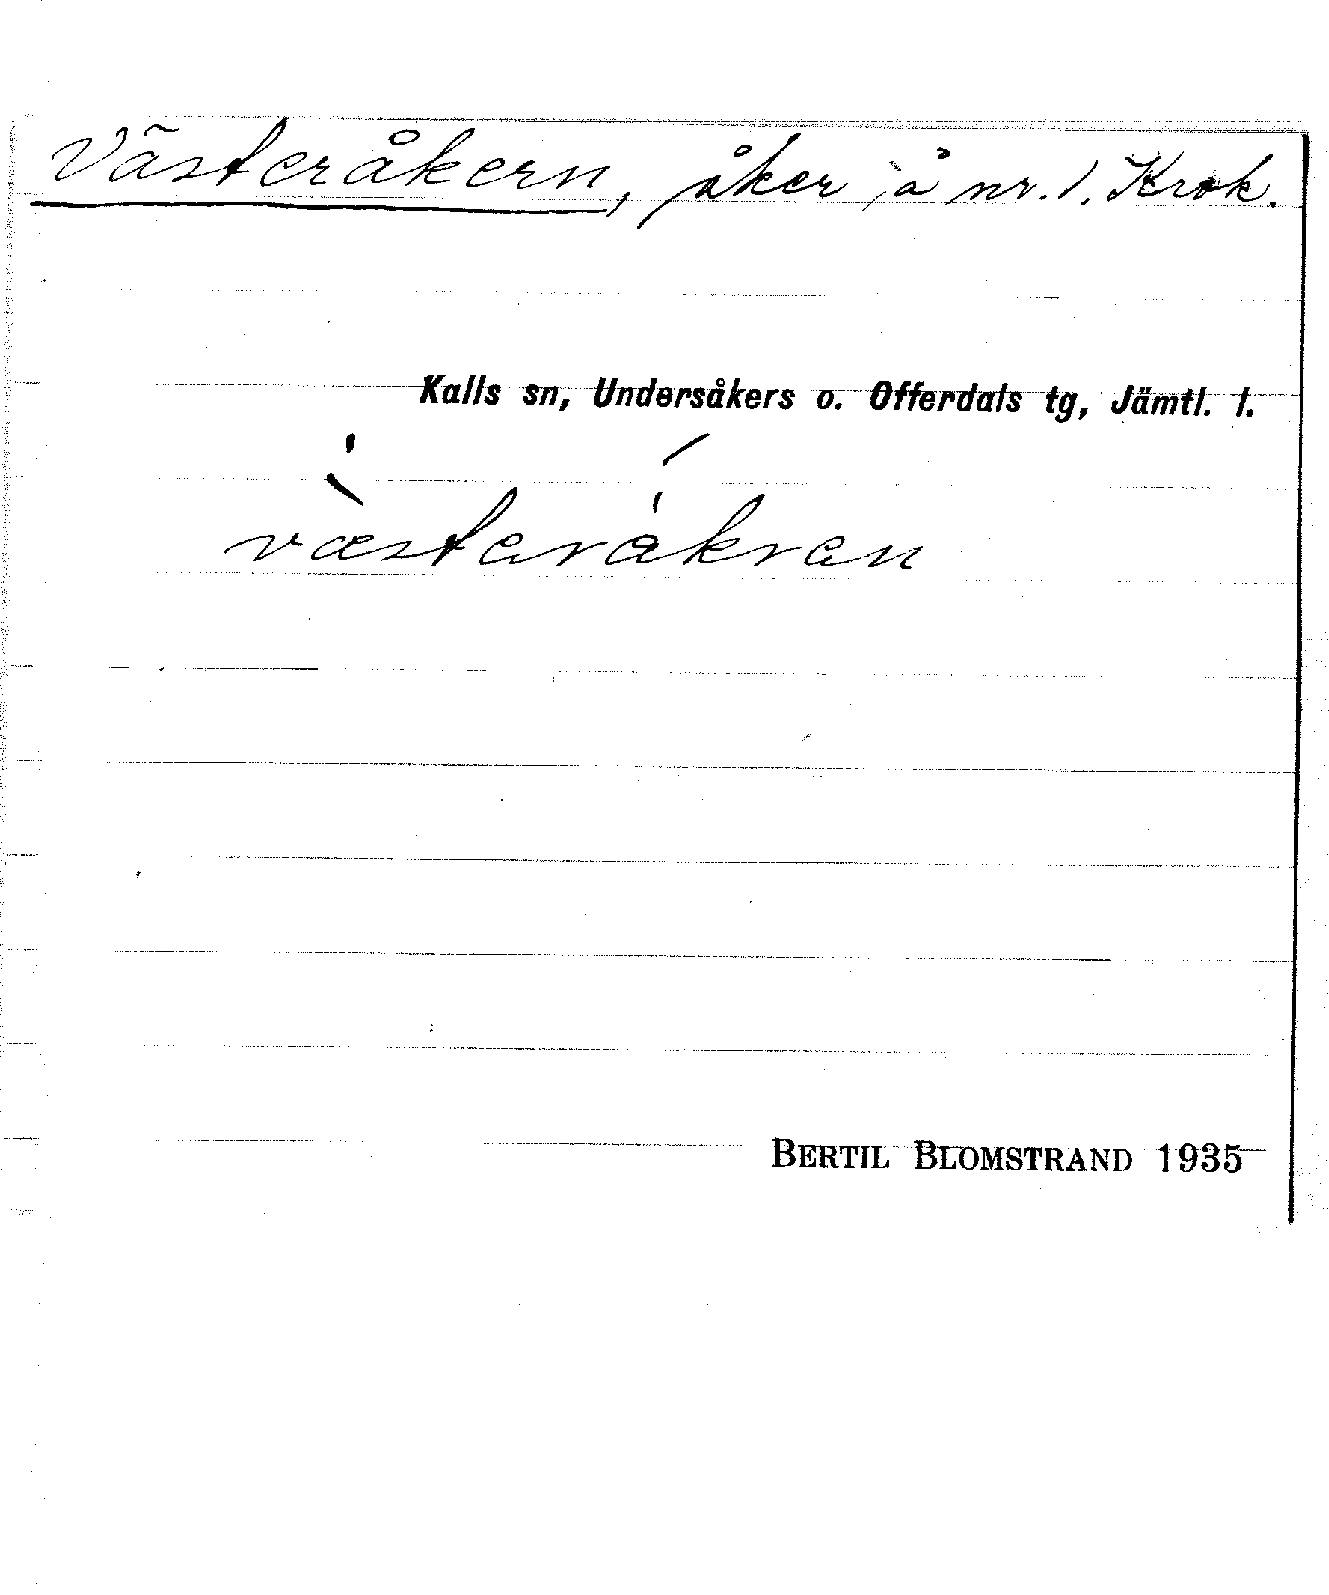 Västeråkern, åker å nr. 1. Krok.
Kalls sn, Undersåkers o. Offerdals tg, Jämtl. l.
væsteråkren
BERTIL BLOMSTRAND 1935